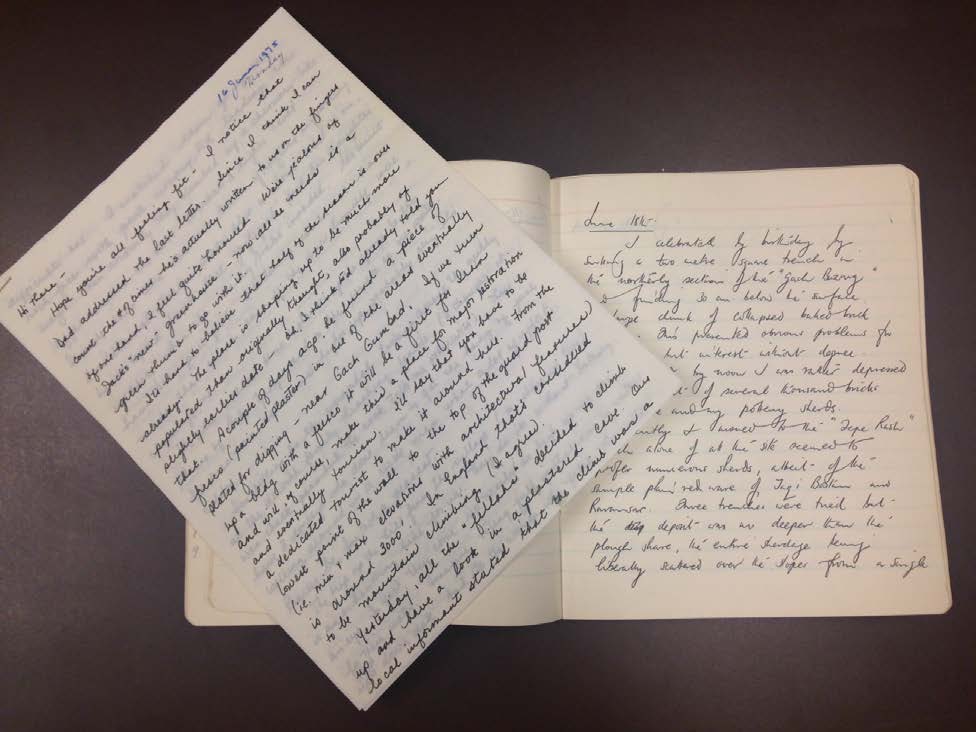 16 June 1975
Monday
Hi there –
Hope you're all feeling fit – I notice that
Dad addressed the last letter. Since I think I can
count the # of times he's actually written to us on the fingers
of one hand, I feel quite honoured. We're jealous of
Jack's "new" greenhouse – now all he needs is a
green thumb to go with it.
It's hard to believe that half of the season is over
already. The place is shaping up to be much more
populated than originally thought, also probably of
slightly earlier date. I think I'd already told you
that. A couple of days ago he found a piece of
fresco (painted plaster) in one of the areas eventually
slated for digging – near Gach Gumbad. If we turn
up a bldg with a fresco it will be a first for Iran
and will, of course, make this a place for major restoration
and eventually tourism. I'll say that you have to be
a dedicated tourist to make it around here. From the
lowest point of the wall to the top of the guard post
(i.e. min & max elevations with architectural features)
is around 3000'. In England that's considered
to be mountain climbing. (I agree).
Yesterday, all the "fellahs" decided to climb
up and have a look in a plastered cave. Our
local informant stated that the climb was a
June 15th.
I celebrated by birthday by
sinking a two metre square trench in
the northerly section of the "Gach Bozorg"
finding 30 cm below the surface
chunk of collapsed baked brick
This presented obvious problems for
but interest without degree.
by noon I was rather depressed
of several thousand bricks
and my pottery sherds.
I moved to the "Tepe Rash"
alone of at the site seemed to
proffer numerous sherds, albeit of the
simple plain red ware of Taqi Bostan and
Three trenches were tried but
the deposit was no deeper than the
plough share, the entire sherdage being
liberally scattered over the slopes from a single